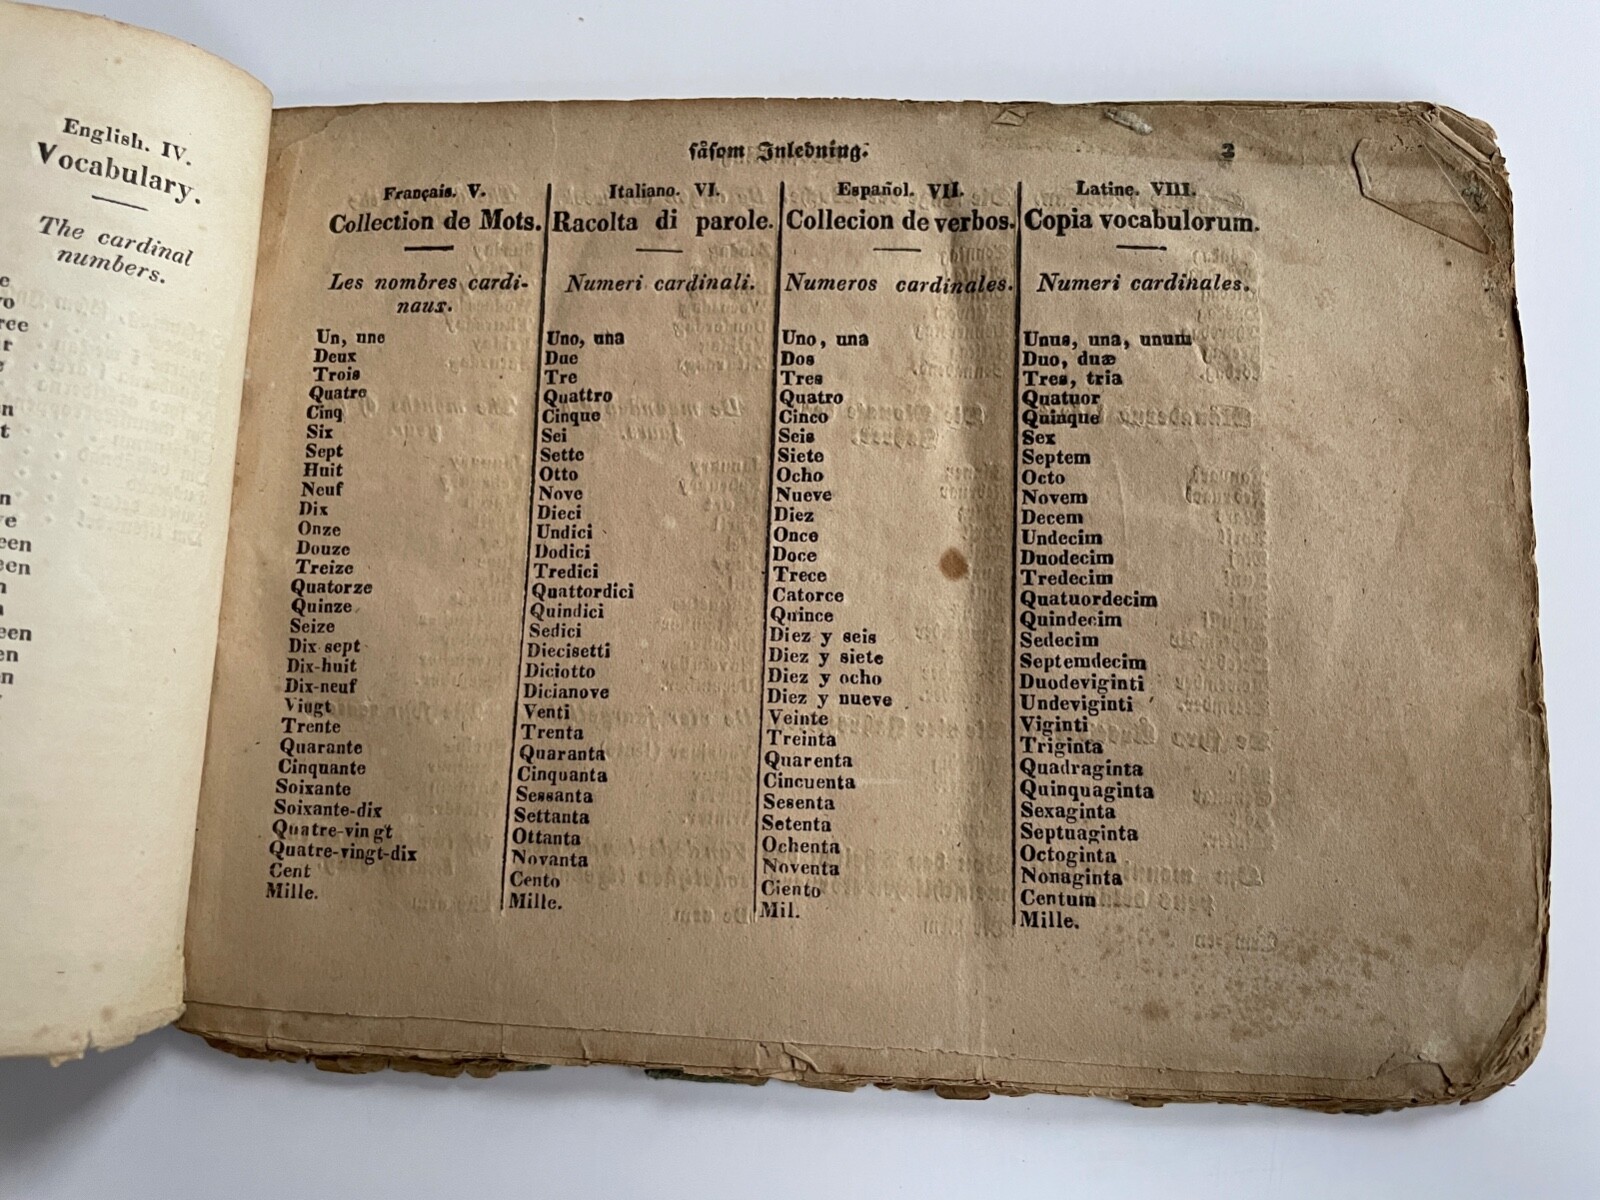 English. IV.
Vocabulary.
The cardinal
numbers.
såsom Inledning.
Français. V.
Collection de Mots.
Les nombres cardi-
naux.
Un, une
Deux
Trois
Quatre
Cinq
Six
Sept
Huit
Neuf
Dix
Onze
Douze
Treize
Quatorze
Quinze
Seize
Dix sept
Dix-huit
Dix-neuf
Vingt
Trente
Quarante
Cinquante
Soixante
Soixante-dix
Quatre-vingt
Quatre-vingt-dix
Cent
Mille.
Italiano. VI.
Racolta di parole.
Numeri cardinali.
Uno, una
Due
Tre
Quattro
Cinque
Sei
Sette
Otto
Nove
Dieci
Undici
Dodici
Tredici
Quattordici
Quindici
Sedici
Diecisetti
Diciotto
Dicianove
Venti
Trenta
Quaranta
Cinquanta
Sessanta
Settanta
Ottanta
Novanta
Cento
Mille.
Español. VII.
Collecion de verbos.
Numeros cardinales.
Uno, una
Dos
Tres
Quatro
Cinco
Seis
Siete
Ocho
Nueve
Diez
Once
Doce
Trece
Catorce
Quince
Diez y seis
Diez y siete
Diez y ocho
Diez y nueve
Veinte
Treinta
Quarenta
Cincuenta
Sesenta
Setenta
Ochenta
Noventa
Ciento
Mil.
Latine. VIII.
Copia vocabulorum.
Numeri cardinales.
Unus, una, unum
Duo, duæ
Tres, tria
Quatuor
Quinque
Sex
Septem
Octo
Novem
Decem
Undecim
Duodecim
Tredecim
Quatuordecim
Quindecim
Sedecim
Septemdecim
Duodeviginti
Undeviginti
Viginti
Triginta
Quadraginta
Quinquaginta
Sexaginta
Septuaginta
Octoginta
Nonaginta
Centum
Mille.